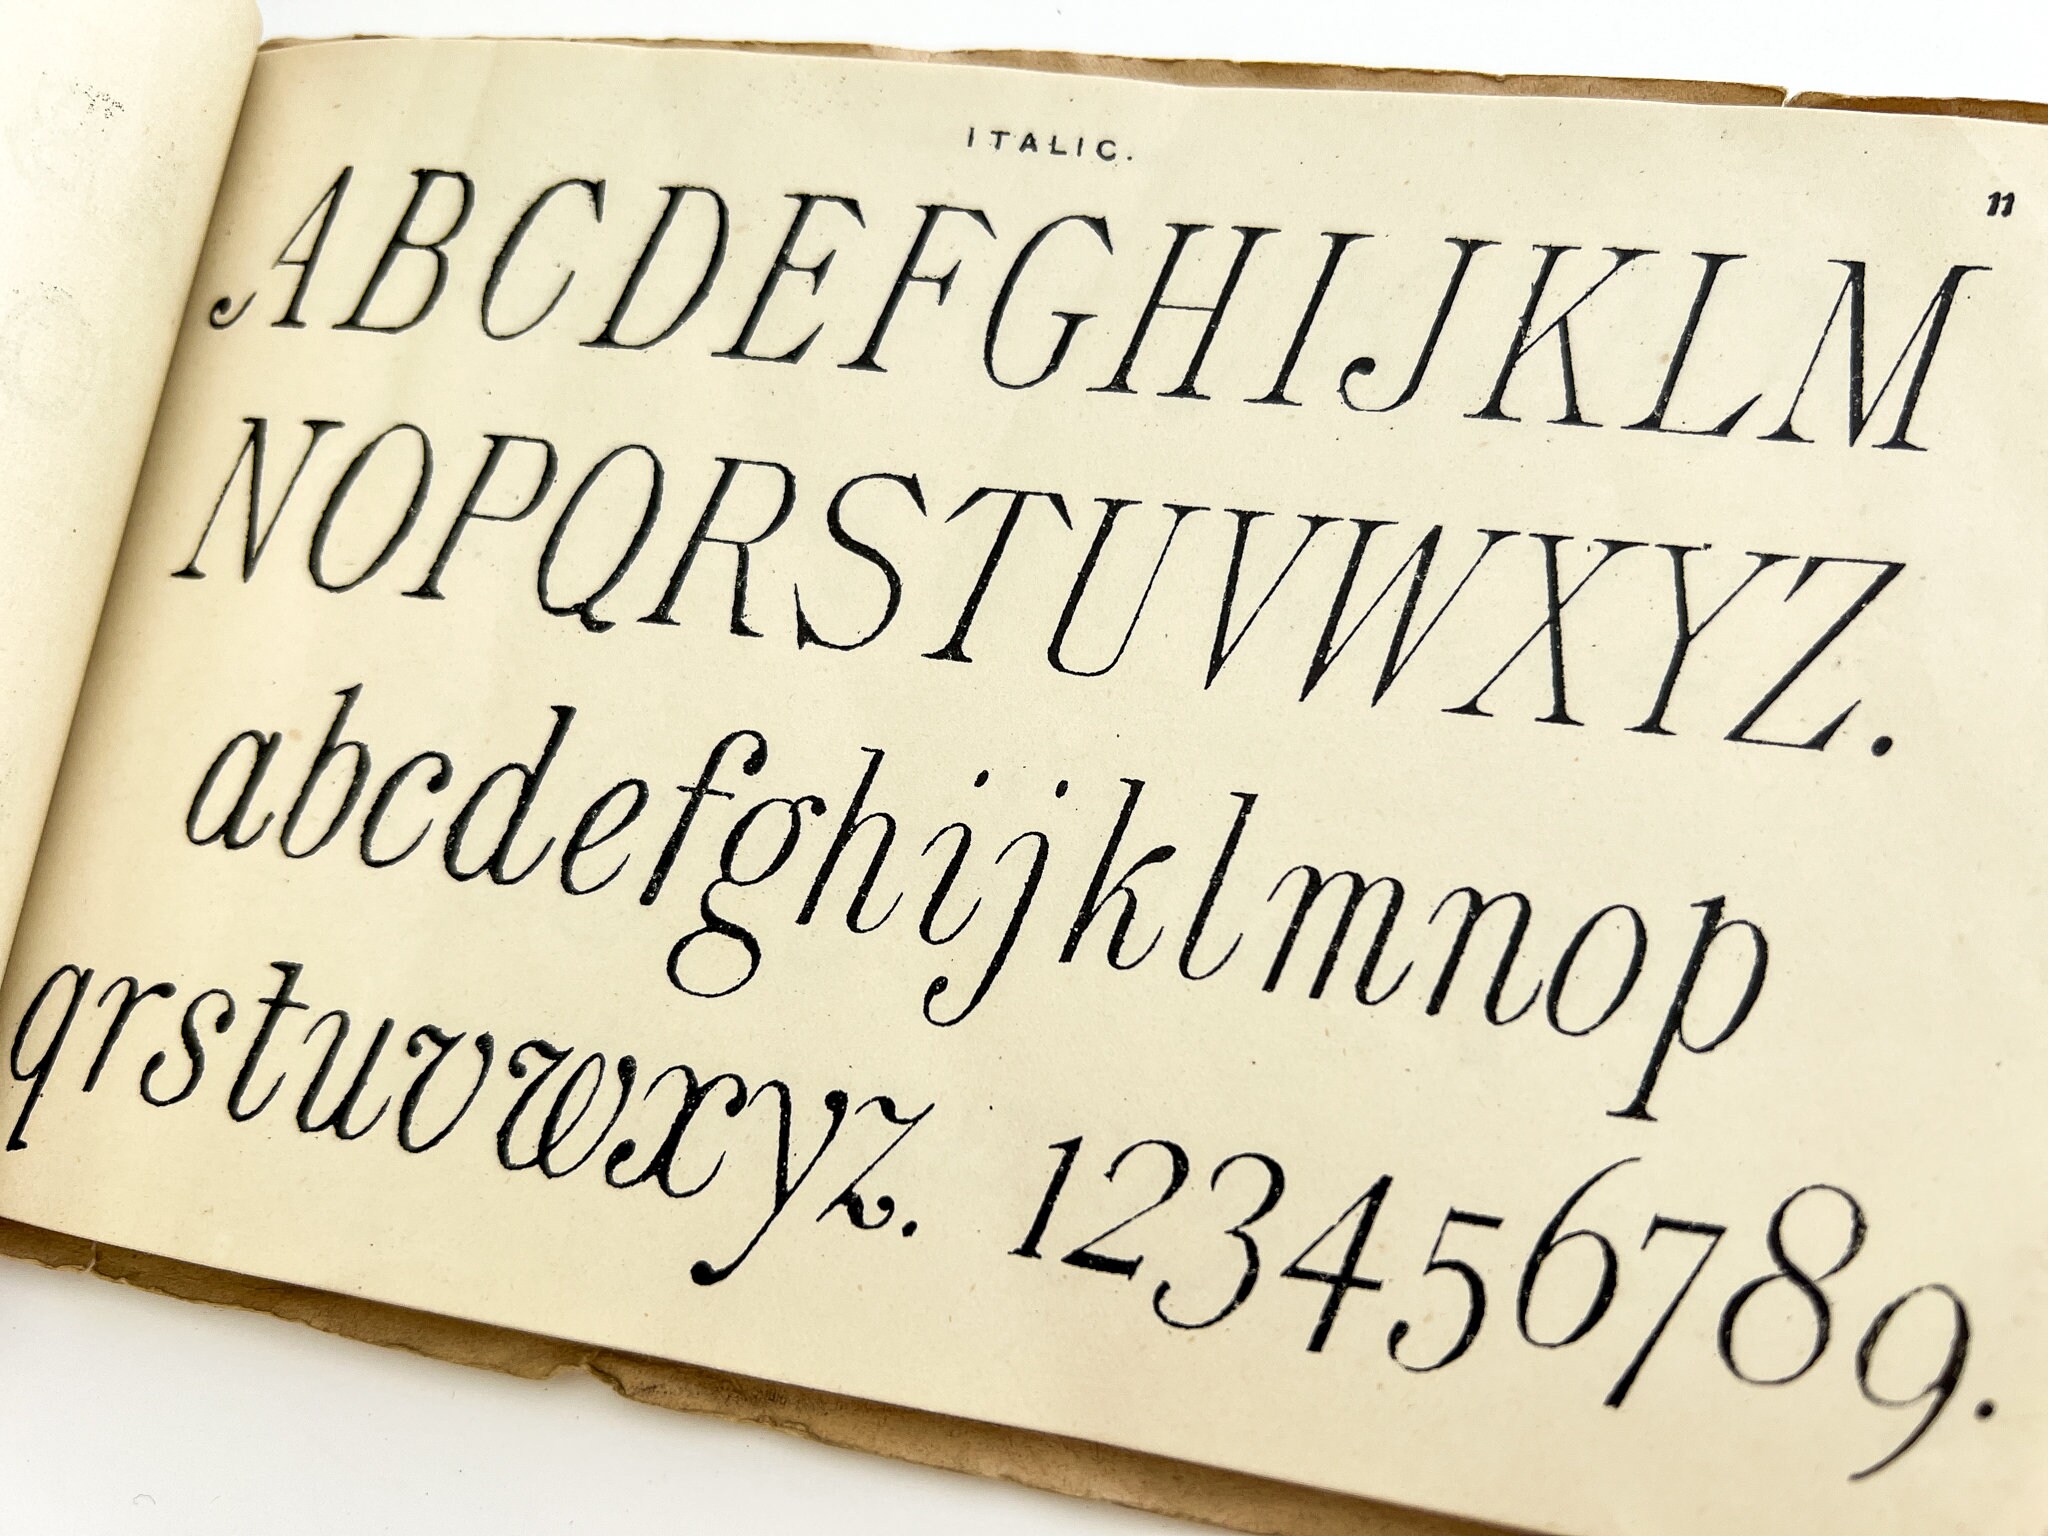 ITALIC.
11
ABCDEFGHIJKLM
NOPQRSTUVWXYZ.
abcdefghijklmnop
qrstuvwxyz. 123456789.